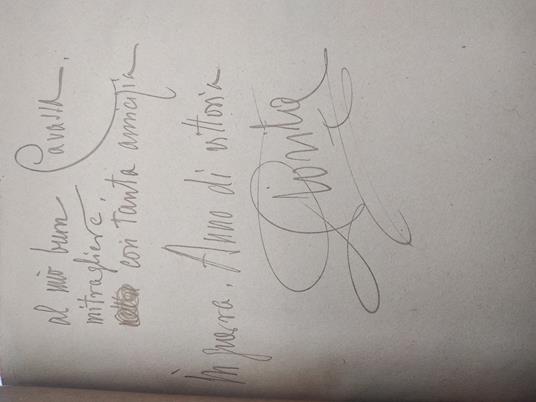 al mio buon
mitragliere Cavassa.
con tanta amicizia
In guerra. Anno di vittoria